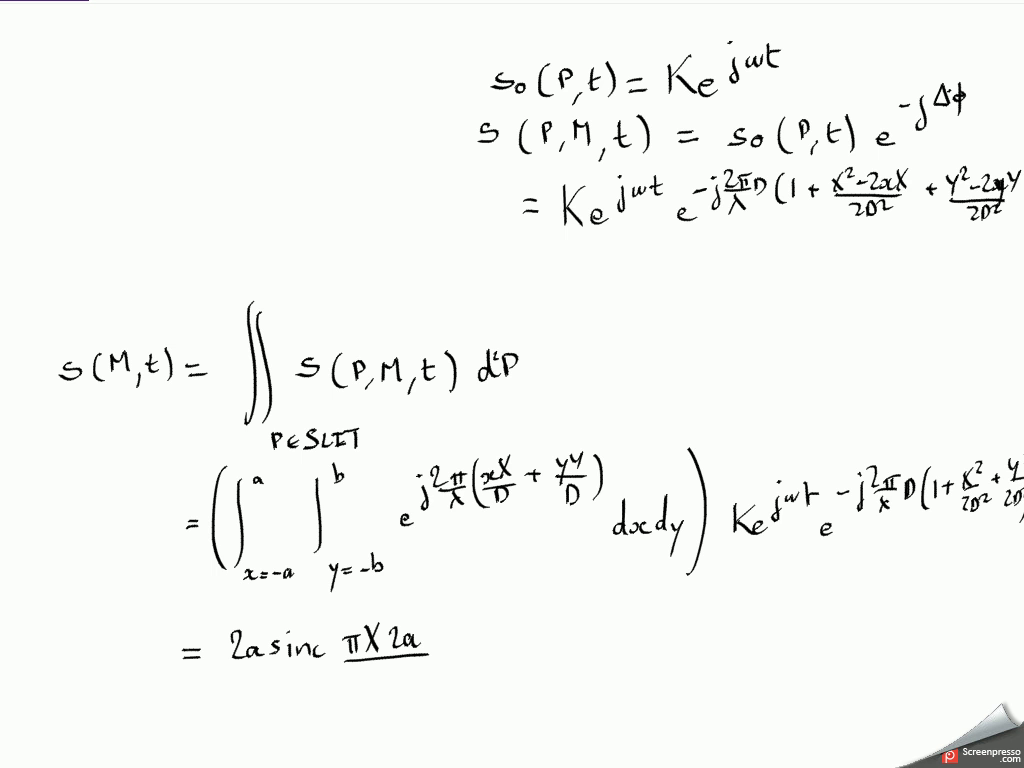 s₀(P,t) = Ke^{jωt}
s(P,M,t) = s₀(P,t) e^{-jΔϕ}
= Ke^{jωt} e^{-j\frac{2π}{λ}D(1 + \frac{X²-2xX}{2D²} + \frac{Y²-2yY}{2D²}}
s(M,t) = ∬_{P∈SLIT} s(P,M,t) d²P
= (∫_{x=-a}^{a} ∫_{y=-b}^{b} e^{j\frac{2π}{λ}(\frac{xX}{D} + \frac{yY}{D})} dxdy) Ke^{jωt} e^{-j\frac{2π}{λ}D(1+\frac{X²}{2D²}+\frac{Y}{2D}}
= 2a sinc πX2a
Screenpresso
.com